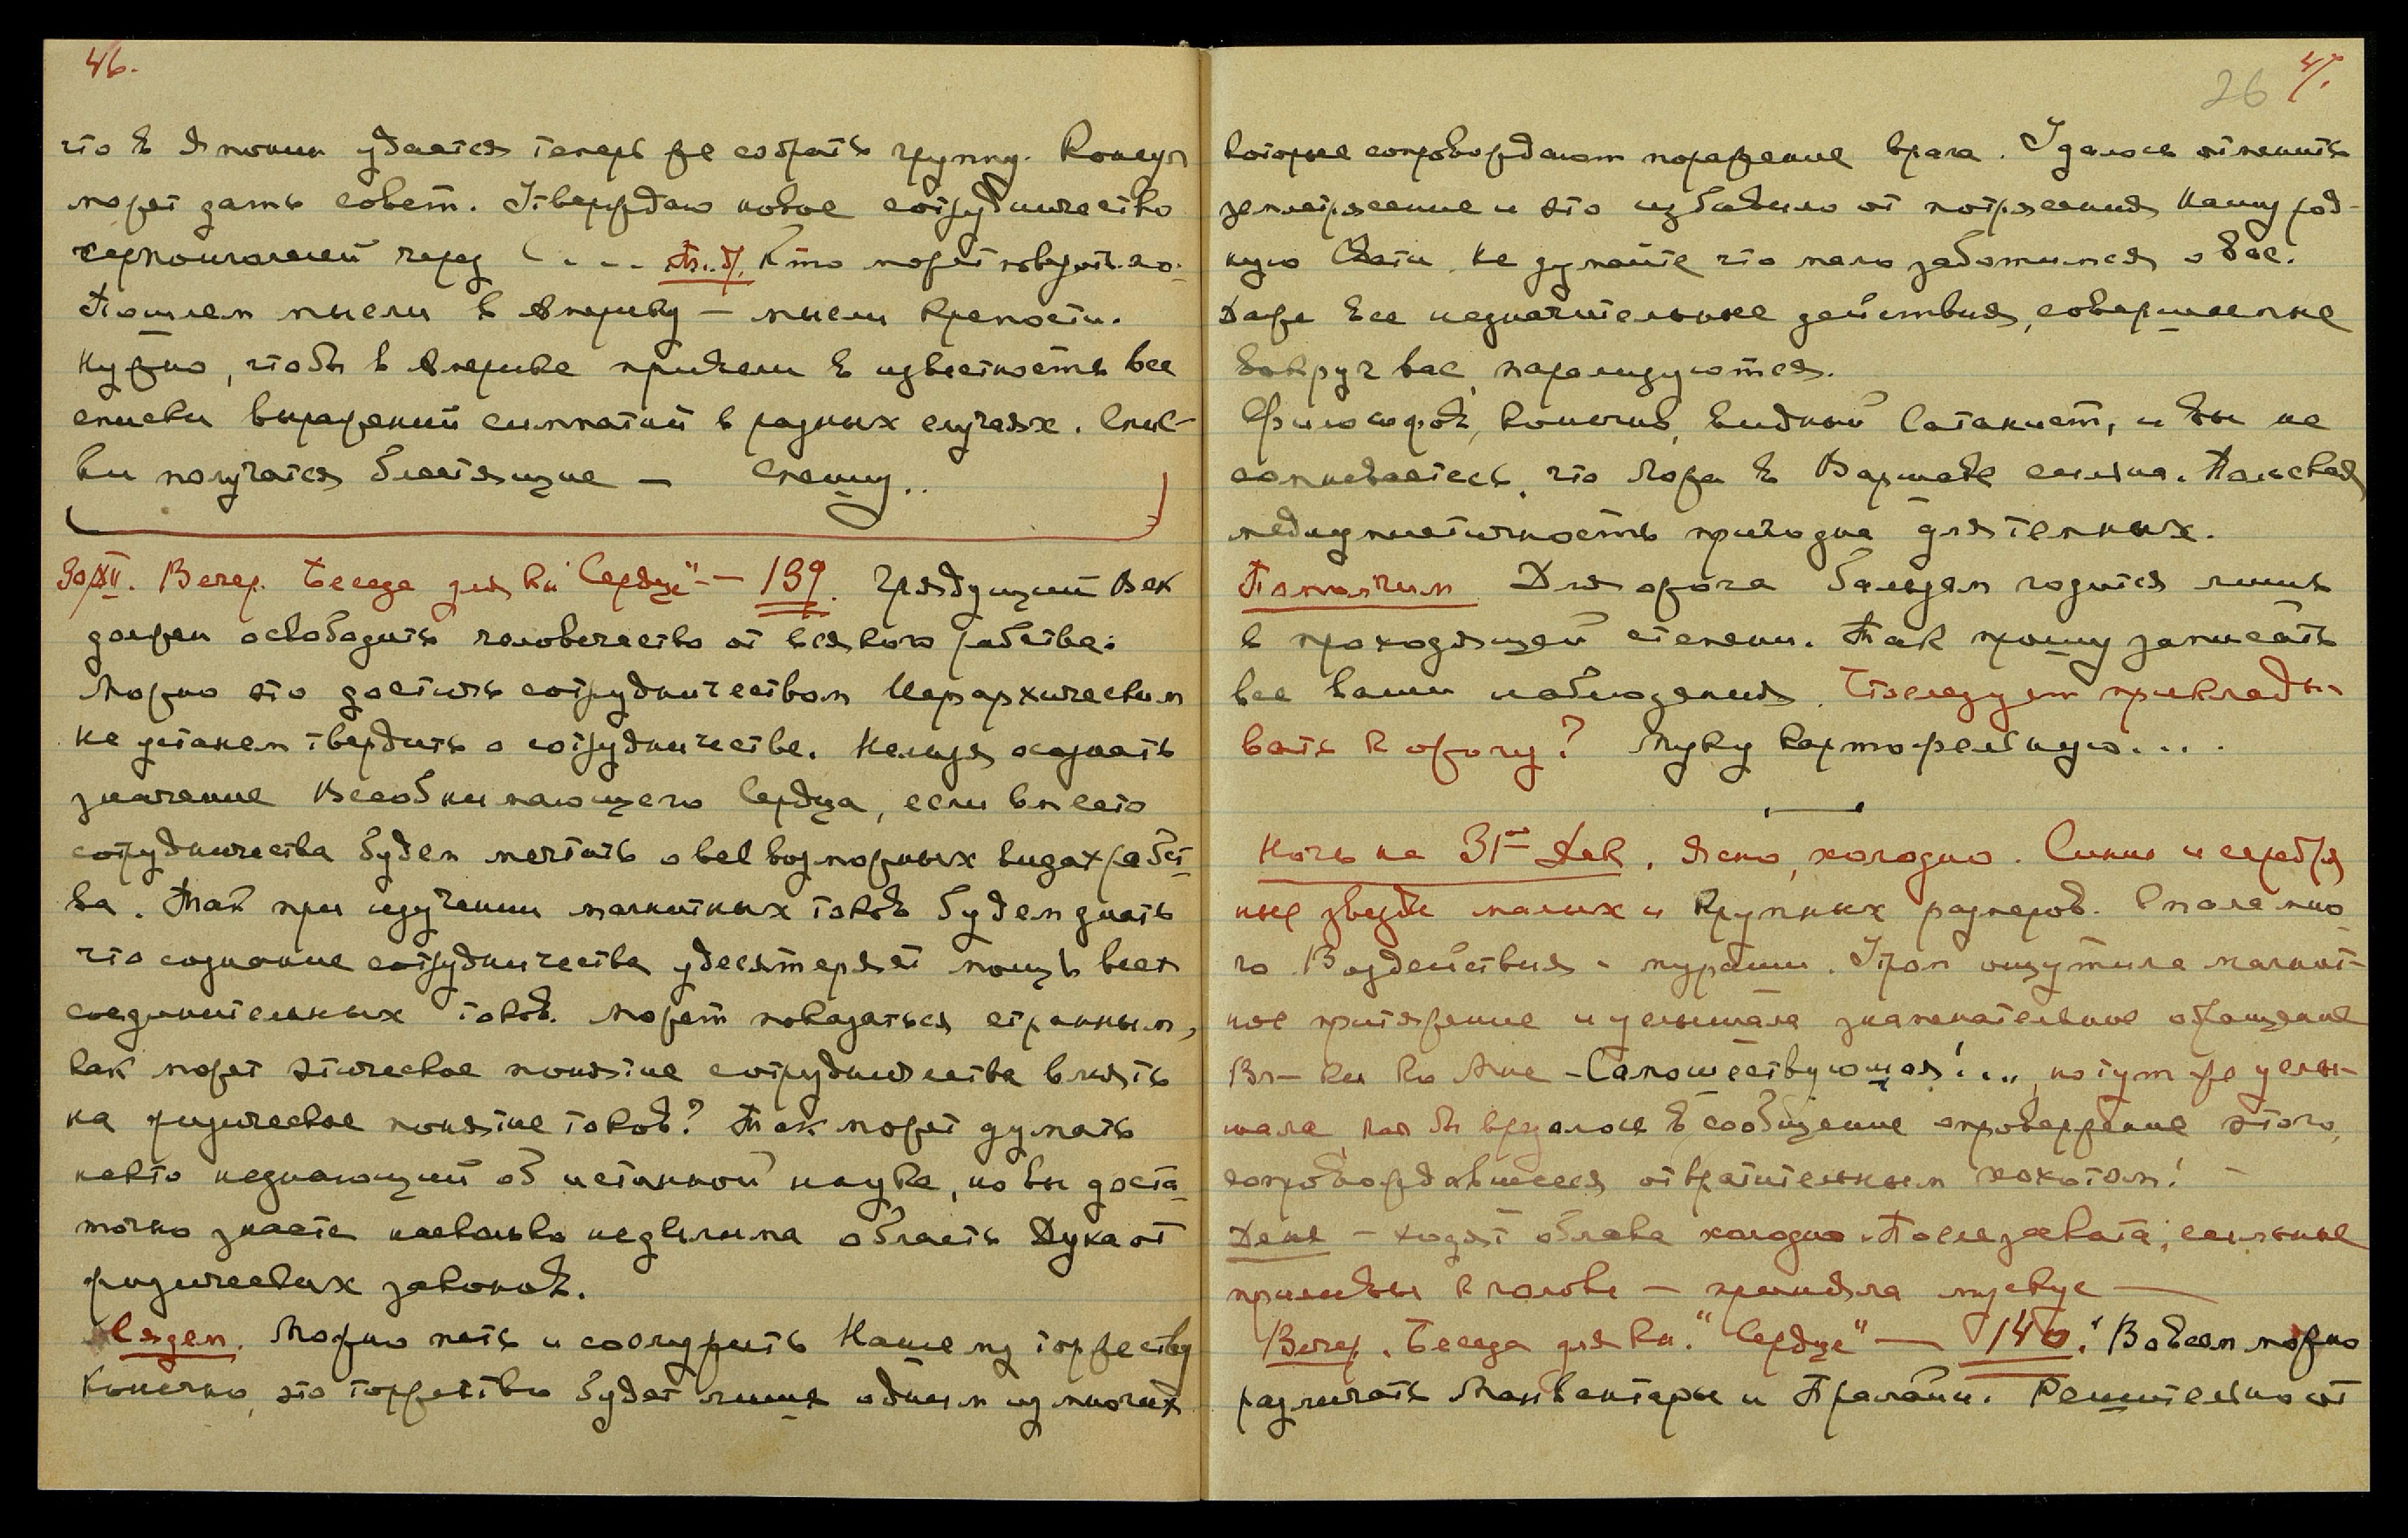 46.
что в Японии удается теперь же собрать группу. Консул
может дать совет. Утверждаю новое сотрудничество
через (.... Кто может поверить.
Пошлем мысли в Америку — мысли крепости.
Нужно, чтобы в Америке привели в известность все
списки выражений симпатий в разных случаях. Спис-
ки получатся блестящие — Спешу..
30/XII. Вечер. Беседа для кн "Сердце" — 139. Грядущий Век
должен освободить человечество от всякого рабства.
Можно это достичь сотрудничеством Иерархическим
Не устанем твердить о сотрудничестве. Нельзя осознать
значение Всеобнимающего Сердца, если вместо
сотрудничества будем мечтать о всевозможных видах рабст-
ва. Так при изучении магнитных токов будем знать
что сознание сотрудничества удесятеряет мощь всех
соединительных токов. Может показаться странным,
как может этическое понятие сотрудничества влиять
на физическое понятие токов? Так может думать
некто незнающий об истинной науке, но вы доста-
точно знаете насколько неделима область Духа от
физических законов.
Сядем. Можно петь и сослужить Нашему торжеству
Конечно, это торжество будет лишь одним из многих
26 47.
которые сопровождают поражение врага. Удалось отменить
землетрясение и это избавило от потрясения Нашу род-
ную Не думайте что мало заботимся о Вас.
Даже все незначительные действия, совершаемые
вокруг вас, парализуются.
Философов, конечно, видный Сатанист, и вы не
сомневаетесь, что ложа в Варшаве сильна. Польская
медиумистичность пригодна для темных.
Помолчим Для ожога бальзам годится лишь
в проходящей степени. Так прошу записать
все ваши наблюдения. Следует приклады-
вать к ожогу? Муку картофельную....
Ночь на 31ое Дек. Ясно, холодно. Синие и серебря
ные звезды малых и крупных размеров. много
го Воздействия - мураши. Утром ощутила магнит-
ное притяжение и услышала знаменательное обращение
Вл-ки ко Мне - Самошествующая!.., но тут же услы-
шала, как бы врезалось в сообщение опровержение этого,
сопровождавшееся отвратительным хохотом!
День - ходят облака холодно. После заката, сильные
приливы к голове — приняла мускус —
Вечер. Беседа для кн. "Сердце" — 140. "Во всем можно
различать Манвантары и Пралайи. Решительно от